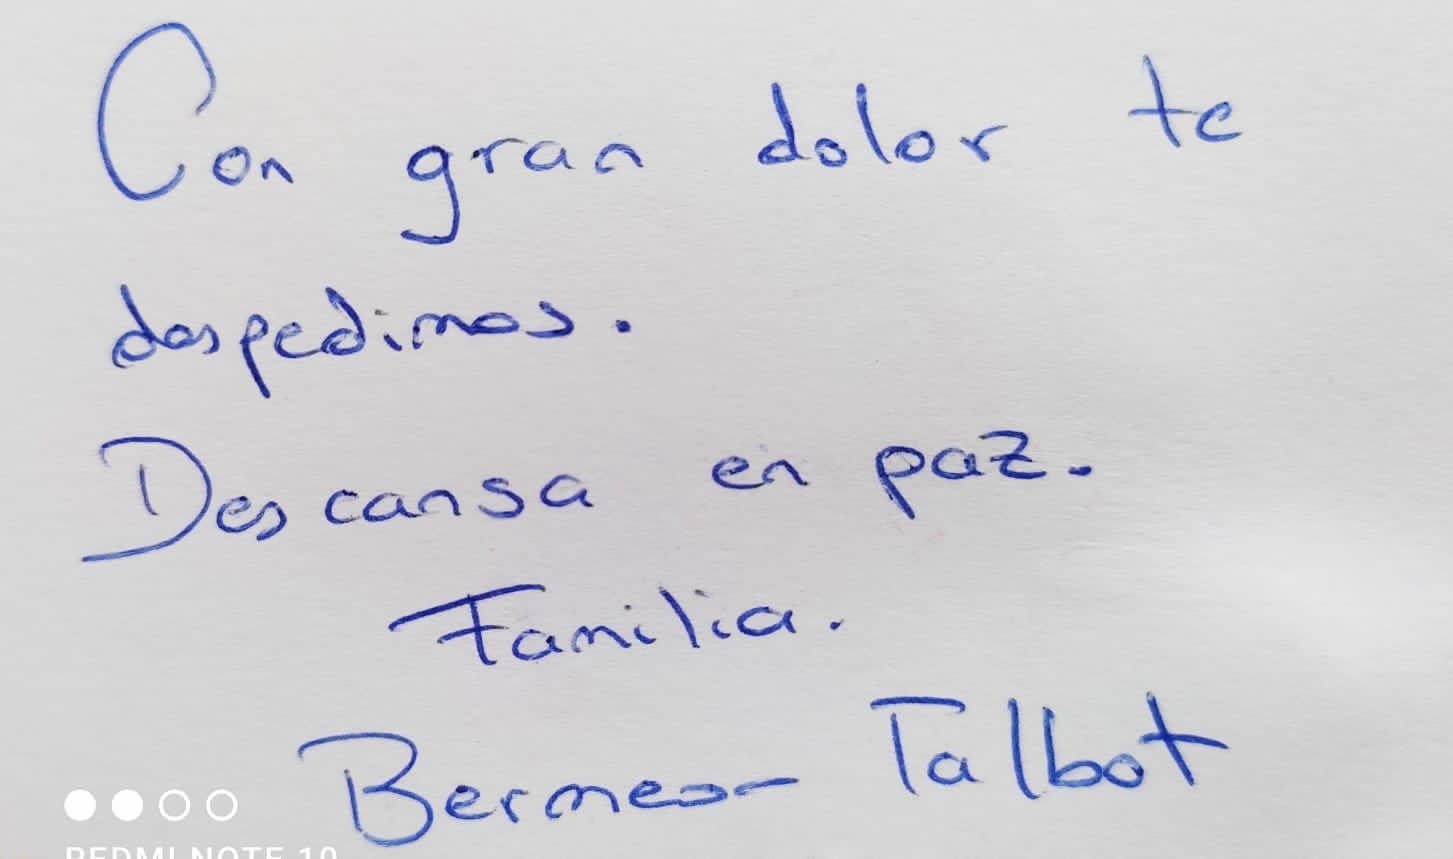 Con gran dolor te
despedimos.
Descansa en paz.
Familia.
Bermeo- Talbot
REDMI NOTE 10